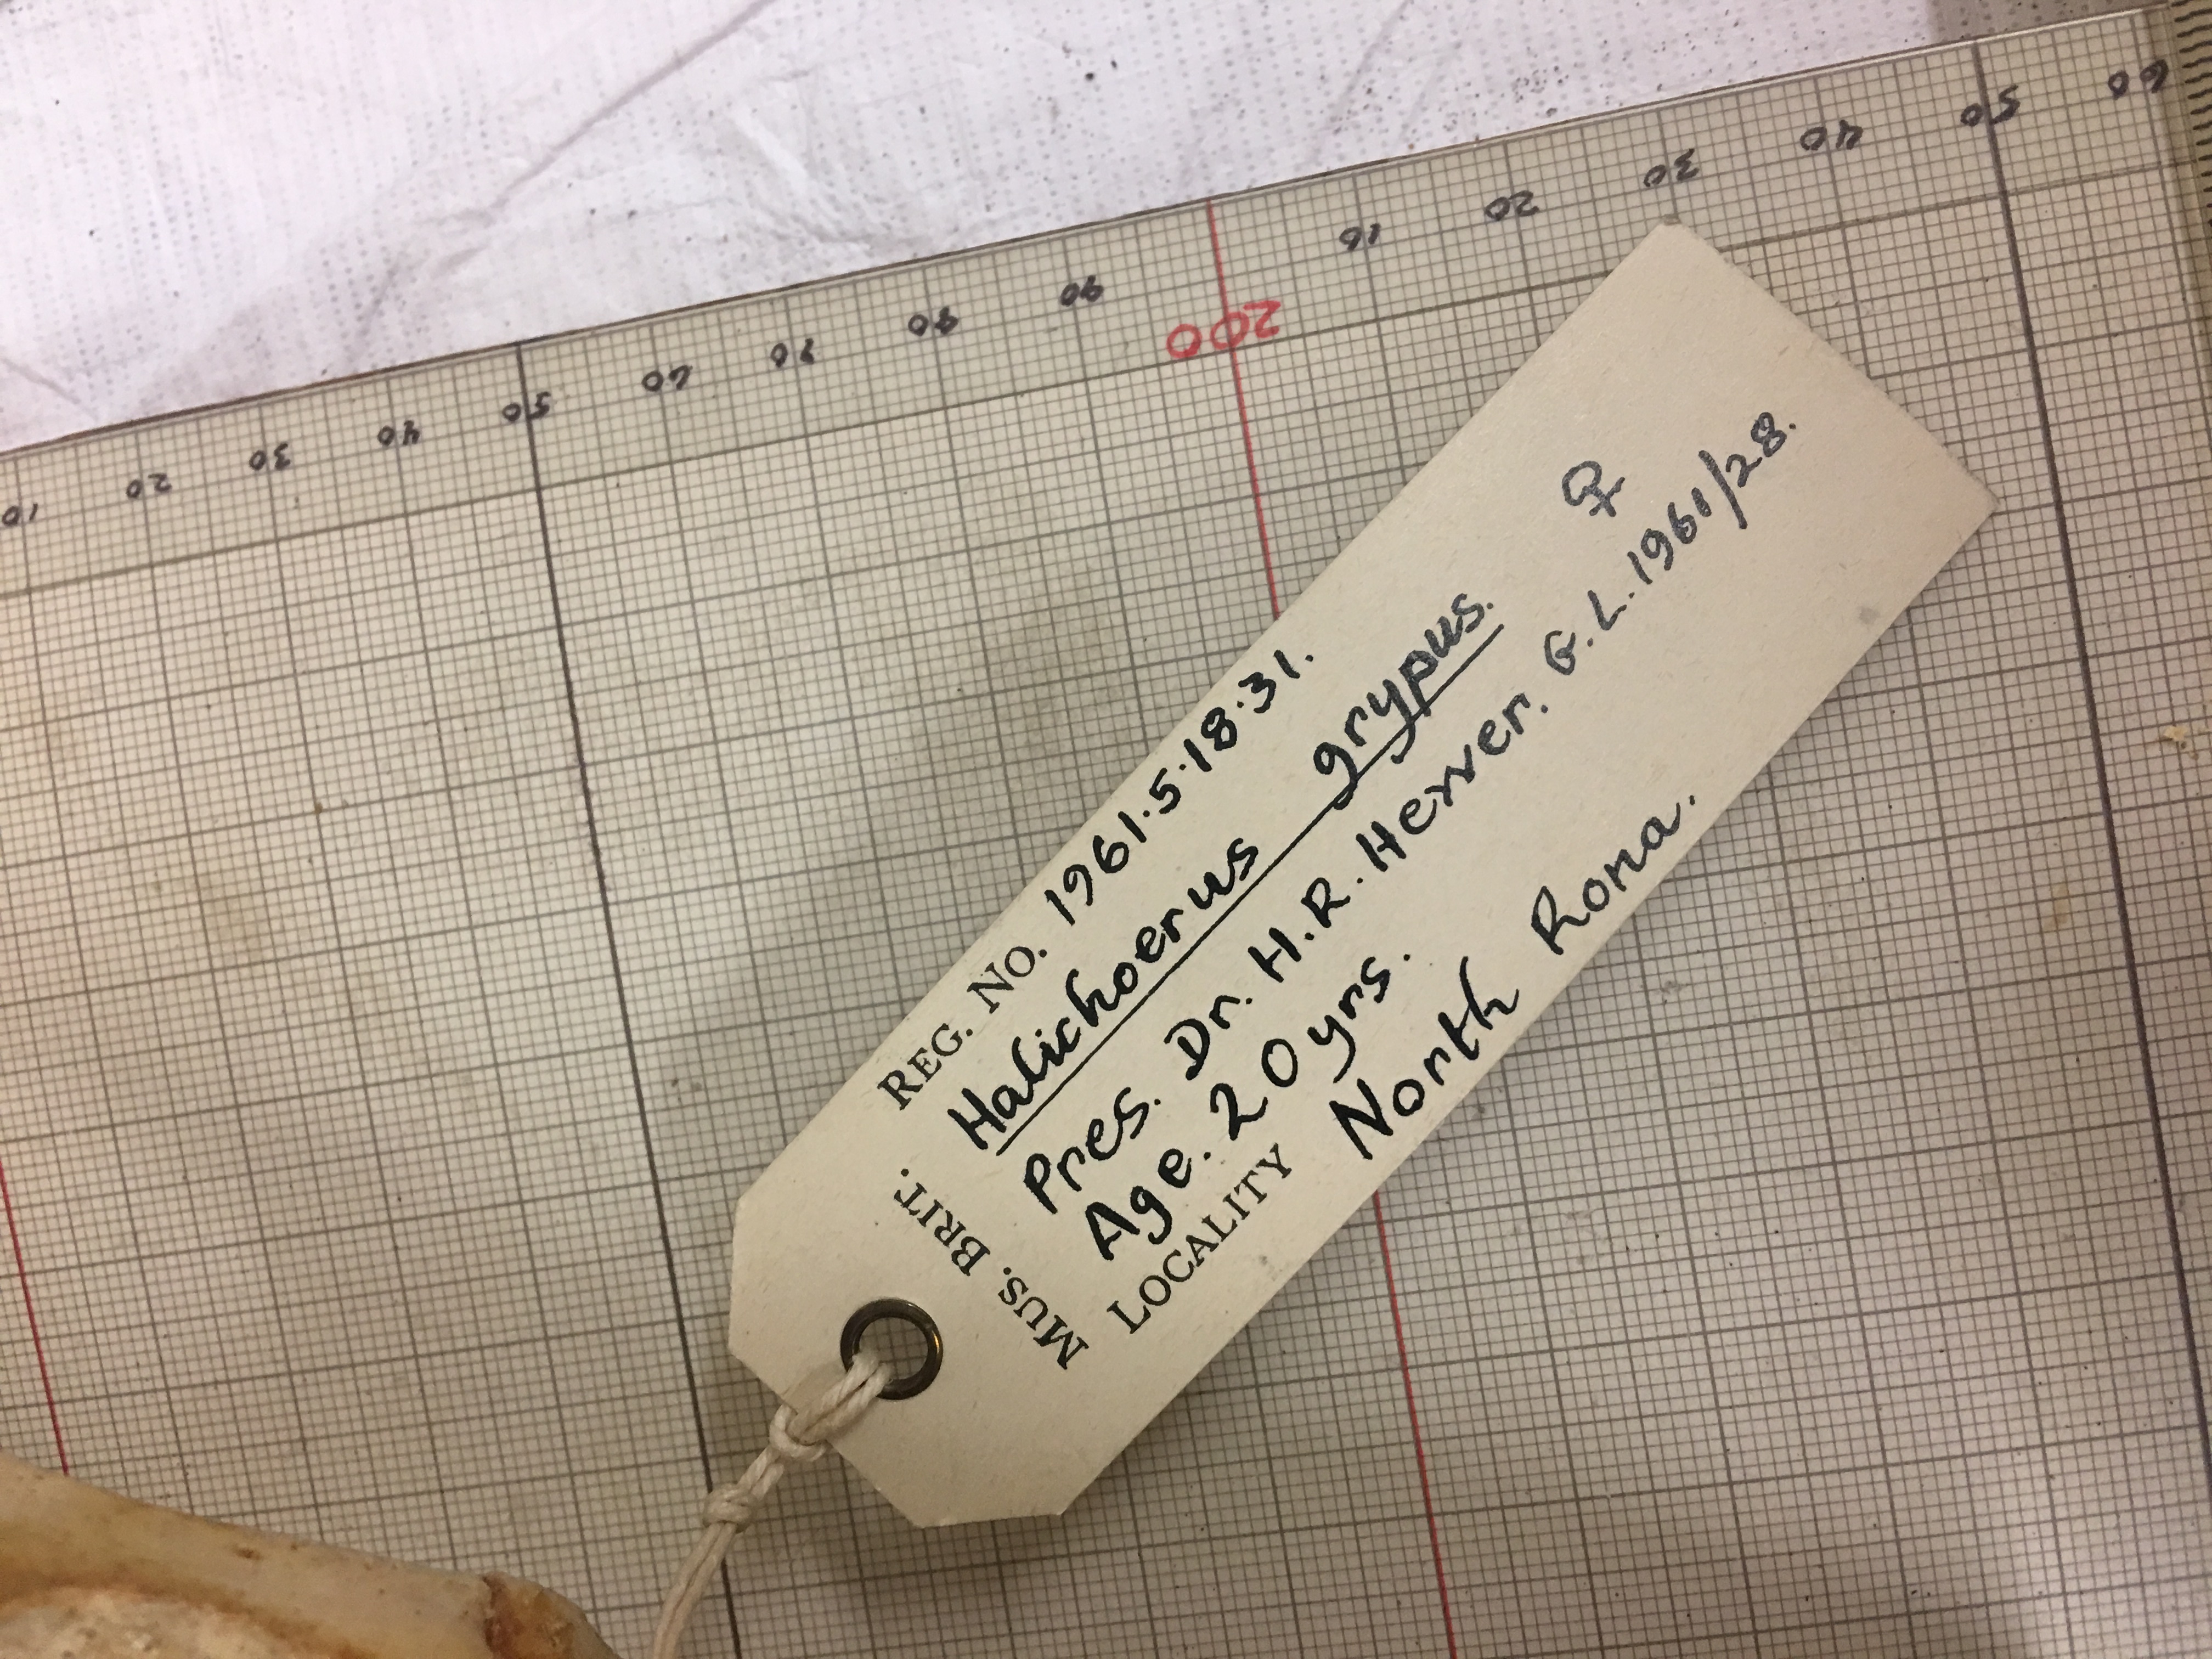 MUS. BRIT.
REG. NO. 1961.5.18.31.
Halichoerus grypus. ♀
Pres. Dr. H.R. Hewer. G.L. 1961/28.
Age. 20 yrs.
LOCALITY North Rona.
10
20
30
40
50
60
70
80
90
200
10
20
30
40
50
60